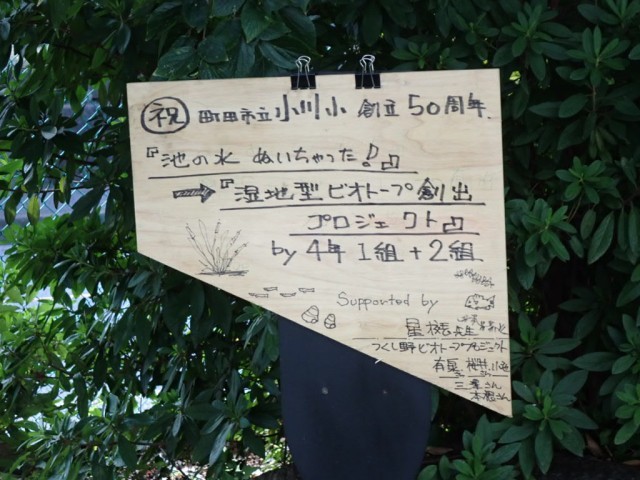 祝 町田市立小川小 創立50周年.
『池の水 ぬいちゃった!』
『湿地型ビオトープ創出
プロジェクト』
by 4年1組+2組
Supported by
つくし野ビオトーププロジェクト